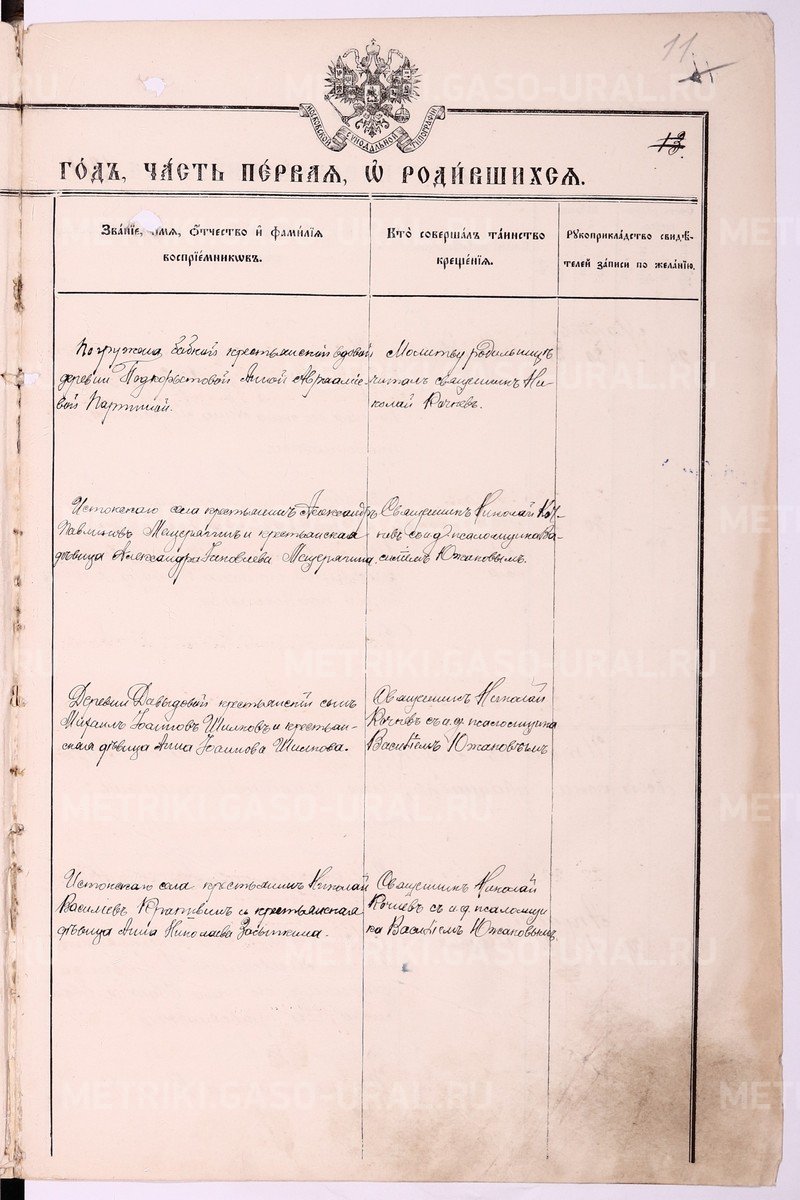 11
12
МОСКОВСКОЙ СУНОДАЛЬНОЙ ТИПОГРАФIИ
ГО́ДЪ, ЧА́СТЬ ПЕ́РВАѦ, Ѡ҆ РОДИ́ВШИХСѦ.
ЗВА́НЇЕ, И́МѦ, О́ТЧЕСТВО И҆ ФАМИ́ЛЇѦ
ВОСПРЇЕ́МНИКѠВЪ.
КТО̀ СОВЕРША́ЛЪ ТА́ИНСТВО
КРЕЩЕ́НЇѦ.
РꙊКОПРИКЛА́ДСТВО СВИДѢ́-
ТЕЛЕЙ ЗА́ПИСИ ПО ЖЕЛА́НЇЮ.
Погружена бабкой крестьянской вдовой
деревни Подкорытовой Анной Авраамие-
вой
Молитву родильницѣ
читалъ священникъ Ни-
колай Кочневъ.
Истокскаго села крестьянинъ Александръ
Павликовъ Мещерягинъ и крестьянская
дѣвица Александра Яковлева Мещерягина.
Священникъ Николай Коч-
невъ съ и.д. псаломщика Ва-
силіемъ Южаковымъ.
Деревни Давыдовой крестьянскій сынъ
Михаилъ Іоанновъ и крестьян-
ская дѣвица Анна Іоаннова
Священникъ Николай
Кочневъ съ и.д. псаломщика
Василіемъ Южаковымъ
Истокскаго села крестьянинъ Николай
Василіевъ и крестьянская
дѣвица Анна Николаева
Священникъ Николай
Кочневъ съ и.д. псаломщи-
ка Василіемъ Южаковымъ.
METRIKI.GASO-URAL.RU